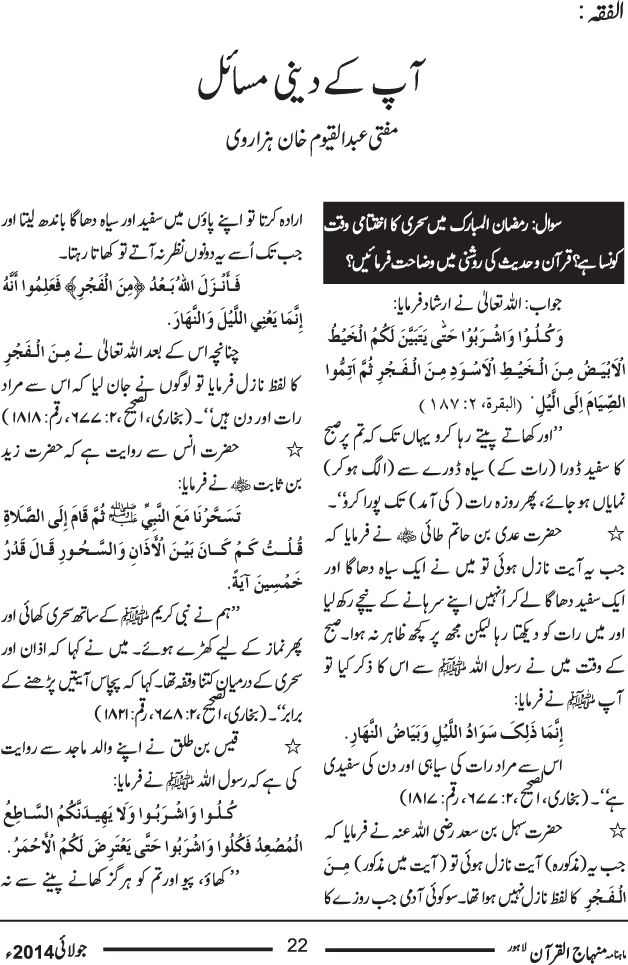 الفقہ:
آپ کے دینی مسائل
مفتی عبدالقیوم خان ہزاروی
سوال: رمضان المبارک میں سحری کا اختتامی وقت
کونسا ہے؟ قرآن و حدیث کی روشنی میں وضاحت فرمائیں؟
جواب: اللہ تعالیٰ نے ارشاد فرمایا:
وَكُلُوْا وَاشْرَبُوْا حَتّٰى يَتَبَيَّنَ لَكُمُ الْخَيْطُ
الْاَبْيَضُ مِنَ الْخَيْطِ الْاَسْوَدِ مِنَ الْفَجْرِ ثُمَّ اَتِمُّوا
الصِّيَامَ اِلَى الَّيْلِ. (البقرة، ۲: ۱۸۷)
’’اور کھاتے پیتے رہا کرو یہاں تک کہ تم پر صبح
کا سفید ڈورا (رات کے) سیاہ ڈورے سے (الگ ہو کر)
نمایاں ہو جائے، پھر روزہ رات (کی آمد) تک پورا کرو‘‘۔
☆ حضرت عدی بن حاتم طائی ؓ نے فرمایا کہ
جب یہ آیت نازل ہوئی تو میں نے ایک سیاہ دھاگا اور
ایک سفید دھاگا لے کر اُنہیں اپنے سرہانے کے نیچے رکھ لیا
اور میں رات کو دیکھتا رہا لیکن مجھ پر کچھ ظاہر نہ ہوا۔ صبح
کے وقت میں نے رسول اللہ ﷺ سے اس کا ذکر کیا تو
آپ ﷺ نے فرمایا:
إِنَّمَا ذَلِكَ سَوَادُ اللَّيْلِ وَبَيَاضُ النَّهَارِ.
اس سے مراد رات کی سیاہی اور دن کی سفیدی
ہے‘‘۔ (بخاری، الصحیح، ۲: ۶۷۷، رقم: ۱۸۱۷)
☆ حضرت سہل بن سعد رضی اللہ عنہ نے فرمایا کہ
جب یہ (مذکورہ) آیت نازل ہوئی تو (آیت میں مذکور) مِنَ
الْفَجْرِ کا لفظ نازل نہیں ہوا تھا۔ سو کوئی آدمی جب روزے کا
ارادہ کرتا تو اپنے پاؤں میں سفید اور سیاہ دھاگا باندھ لیتا اور
جب تک اُسے یہ دونوں نظر نہ آتے تو کھاتا رہتا۔
فَأَنْزَلَ اللهُ بَعْدُ ﴿مِنَ الْفَجْرِ﴾ فَعَلِمُوا أَنَّهُ
إِنَّمَا يَعْنِي اللَّيْلَ وَالنَّهَارَ.
چنانچہ اس کے بعد اللہ تعالیٰ نے مِنَ الْفَجْرِ
کا لفظ نازل فرمایا تو لوگوں نے جان لیا کہ اس سے مراد
رات اور دن ہیں‘‘۔ (بخاری، الصحیح، ۲: ۶۷۷، رقم: ۱۸۱۸)
☆ حضرت انس سے روایت ہے کہ حضرت زید
بن ثابت ؓ نے فرمایا:
تَسَحَّرْنَا مَعَ النَّبِيِّ ﷺ ثُمَّ قَامَ إِلَى الصَّلَاةِ
قُلْتُ كَمْ كَانَ بَيْنَ الْأَذَانِ وَالسَّحُورِ قَالَ قَدْرُ
خَمْسِينَ آيَةً.
’’ہم نے نبی کریم ﷺ کے ساتھ سحری کھائی اور
پھر نماز کے لیے کھڑے ہوئے۔ میں نے کہا کہ اذان اور
سحری کے درمیان کتنا وقفہ تھا۔ کہا کہ پچاس آیتیں پڑھنے کے
برابر‘‘۔ (بخاری، الصحیح، ۲: ۶۷۸، رقم: ۱۸۲۱)
☆ قیس بن طلق نے اپنے والد ماجد سے روایت
کی ہے کہ رسول اللہ ﷺ نے فرمایا:
كُلُوا وَاشْرَبُوا وَلَا يَهِيدَنَّكُمُ السَّاطِعُ
الْمُصْعِدُ فَكُلُوا وَاشْرَبُوا حَتَّى يَعْتَرِضَ لَكُمُ الْأَحْمَرُ.
’’کھاؤ، پیو اور تم کو ہرگز کھانے پینے سے نہ
ماہنامہ منہاج القرآن لاہور 22 جولائی 2014ء